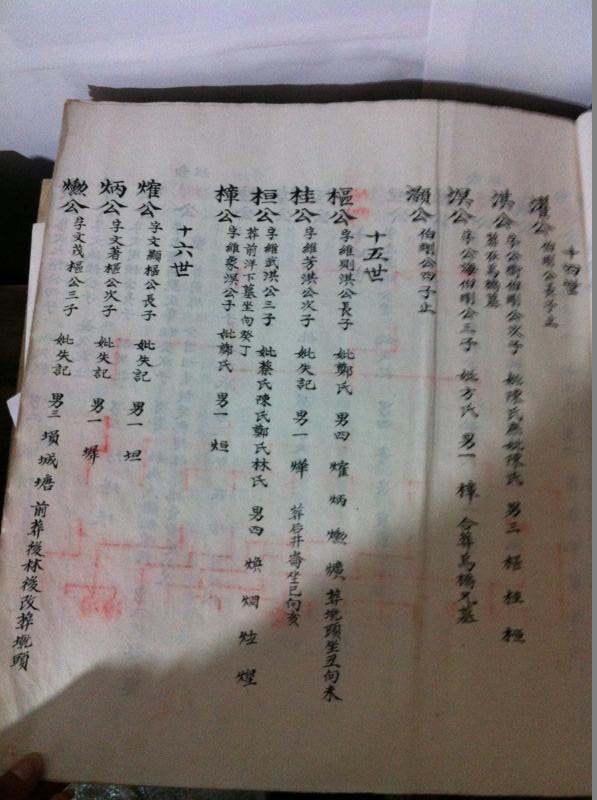 十四世
濯公 伯剛公長子止
淇公 字公衛伯剛公次子 妣陳氏庶妣陳氏 男三 樞 桂 桓
葬在馬橋墓
淏公 字公海伯剛公三子 妣方氏 男一 樟 合葬馬橋兄墓
灝公 伯剛公四子止
十五世
樞公 字維則淇公長子 妣鄭氏 男四 㸌 炳 爋 爌 葬境頭坐丑向未
桂公 字維芳淇公次子 妣失記 男一 燁 葬后井崙坐巳向亥
桓公 字維武淇公三子 妣蔡氏陳氏鄭氏林氏 男四 煥 炯
葬前洋下墓坐向癸丁
樟公 字維豪淏公子 妣鄭氏 男一 烜
十六世
㸌公 字文顯樞公長子 妣失記 男一 坦
炳公 字文著樞公次子 妣失記 男一 墀
爋公 字文茂樞公三子 妣失記 男三 塤 城 塘 前葬後林後改葬境頭